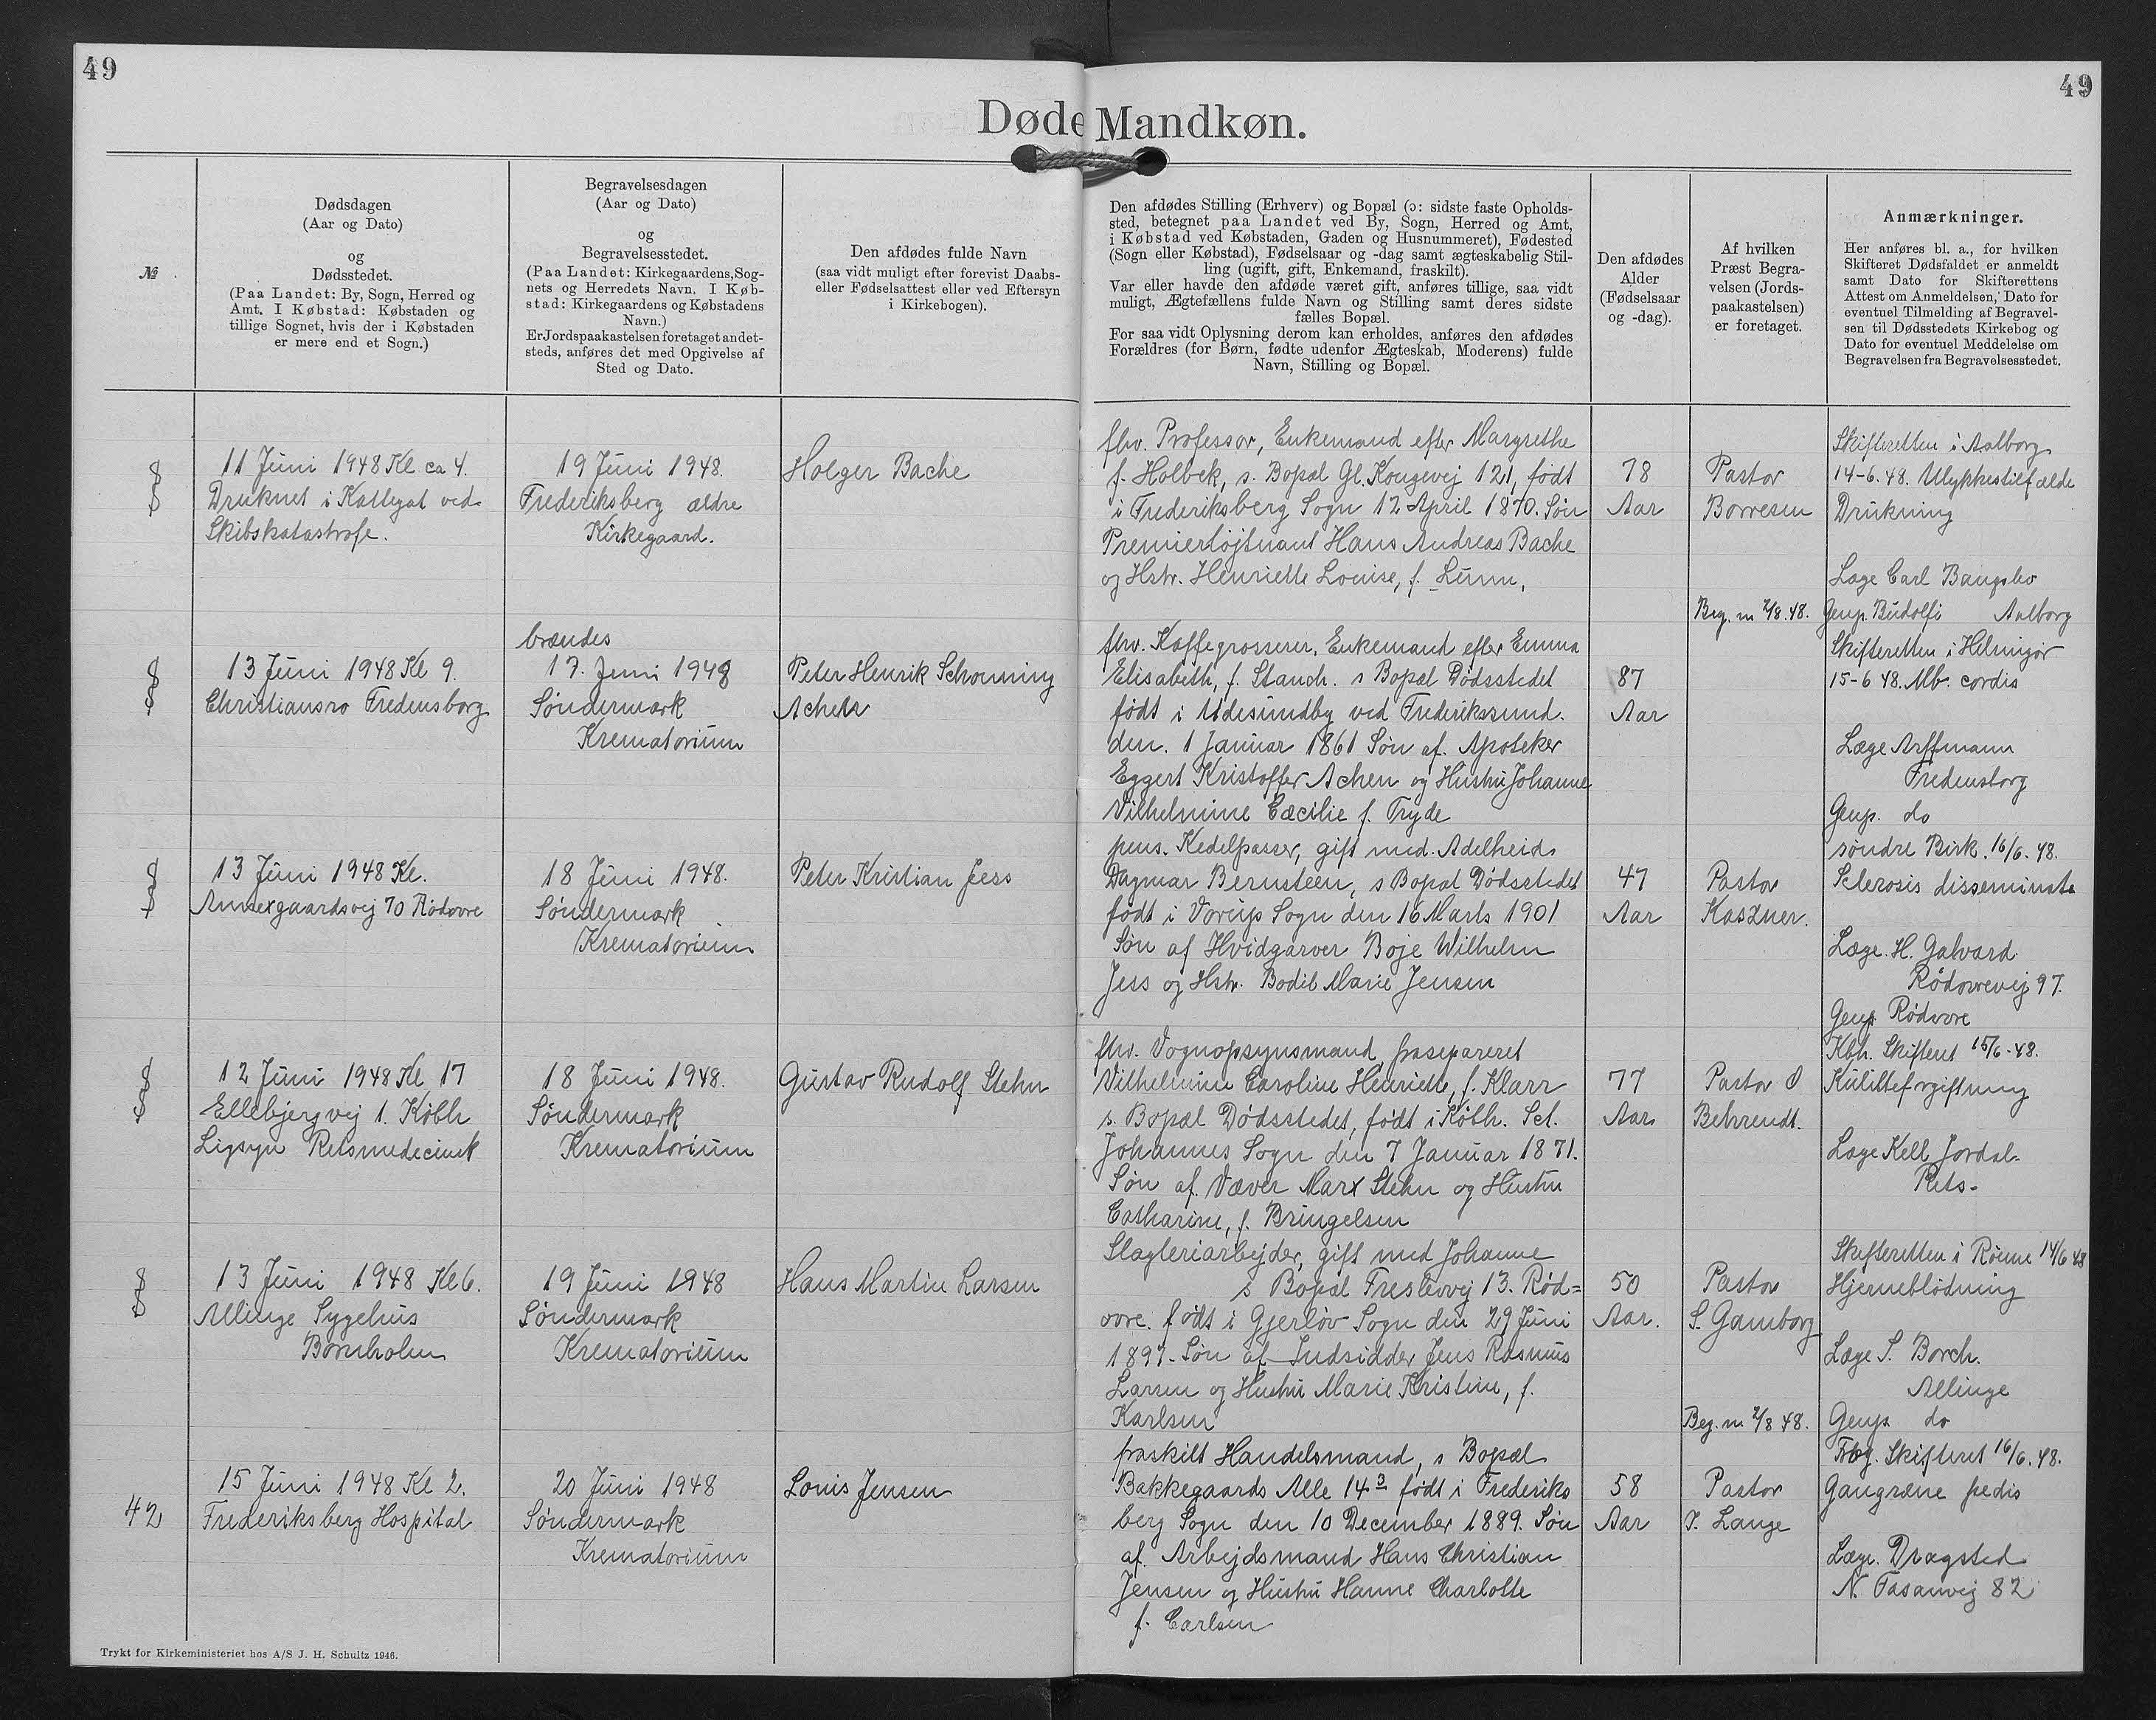 49
49
Døde Mandkøn.
№
Dødsdagen
(Aar og Dato)
og
Dødsstedet.
(Paa Landet: By, Sogn, Herred og
Amt. I Købstad: Købstaden og
tillige Sognet, hvis der i Købstaden
er mere end et Sogn.)
Begravelsesdagen
(Aar og Dato)
og
Begravelsesstedet.
(Paa Landet: Kirkegaardens, Sog-
nets og Herredets Navn. I Køb-
stad: Kirkegaardens og Købstadens
Navn.)
Er Jordspaakastelsen foretaget andet-
steds, anføres det med Opgivelse af
Sted og Dato.
Den afdødes fulde Navn
(saa vidt muligt efter forevist Daabs-
eller Fødselsattest eller ved Eftersyn
i Kirkebogen).
Den afdødes Stilling (Erhverv) og Bopæl (ɔ: sidste faste Opholds-
sted, betegnet paa Landet ved By, Sogn, Herred og Amt,
i Købstad ved Købstaden, Gaden og Husnummeret), Fødested
(Sogn eller Købstad), Fødselsaar og -dag samt ægteskabelig Stil-
ling (ugift, gift, Enkemand, fraskilt).
Var eller havde den afdøde været gift, anføres tillige, saa vidt
muligt, Ægtefællens fulde Navn og Stilling samt deres sidste
fælles Bopæl.
For saa vidt Oplysning derom kan erholdes, anføres den afdødes
Forældres (for Børn, fødte udenfor Ægteskab, Moderens) fulde
Navn, Stilling og Bopæl.
Den afdødes
Alder
(Fødselsaar
og -dag).
Af hvilken
Præst Begra-
velsen (Jords-
paakastelsen)
er foretaget.
Anmærkninger.
Her anføres bl. a., for hvilken
Skifteret Dødsfaldet er anmeldt
samt Dato for Skifterettens
Attest om Anmeldelsen, Dato for
eventuel Tilmelding af Begravel-
sen til Dødsstedets Kirkebog og
Dato for eventuel Meddelelse om
Begravelsen fra Begravelsesstedet.
11 Juni 1948 Kl ca 4.
Druknet i Kattegat ved
Skibskatastrofe.
19 Juni 1948.
Frederiksberg ældre
Kirkegaard.
Holger Bache
fhv. Professor, Enkemand efter Margrethe
f. Holbek, s. Bopæl Gl. Kongevej 121, født
i Frederiksberg Sogn 12 April 1870. Søn
Premierløjtnant Hans Andreas Bache
og Hstr. Henriette Louise, f. Lunn,
78
Aar
Pastor
Borresen
Beg. m 2/8 48.
Skifteretten i Aalborg
14-6. 48. Ulykkestilfælde
Drukning
Læge Carl Bangsbo
Genp. Budolfi Aalborg
13 Juni 1948 Kl 9.
Christiansro Fredensborg
brændes
17. Juni 1948
Søndermark
Krematorium
Peter Henrik Schouning
Achen
fhv. Kaffegrosserer, Enkemand efter Emma
Elisabeth, f. Stauch. s Bopæl Dødsstedet
født i Udesundby ved Frederikssund.
den. 1 Januar 1861 Søn af. Apoteker
Eggert Kristoffer Achen og Hustru Johanne
Vilhelmine Cæcilie f. Tryde
87
Aar
Skifteretten i Helsingør
15-6 48. Mb. cordis
Læge Arffmann
Fredensborg
Genp. do
13 Juni 1948 Kl.
Annexgaardsvej 70 Rødovre
18 Juni 1948.
Søndermark
Krematorium
Peter Kristian Jess
pens. Kedelpasser, gift med Adelheid
Dagmar Bernsteen, s Bopæl Dødsstedet
født i Vorup Sogn den 16 Marts 1901
Søn af Hvidgarver Boje Wilhelm
Jess og Hstr. Bodil Marie Jensen
47
Aar
Pastor
Kaszner.
søndre Birk. 16/6. 48.
Sclerosis disseminata
Læge. H. Galvard
Rødovrevej 97.
Genp Rødovre
12 Juni 1948 Kl 17
Ellebjergvej 1. Købh
Ligsyn Retsmedecinsk
18 Juni 1948.
Søndermark
Krematorium
Gustav Rudolf Stehn
fhv. Vognopsynsmand, frasepareret
Vilhelmine Caroline Henriette, f. Klarr
s. Bopæl Dødsstedet, født i Købh. Sct.
Johannes Sogn den 7 Januar 1871.
Søn af. Væver Marx Stehn og Hustru
Catharine, f. Bringelsen
77
Aar
Pastor O
Behrendt.
Kbh. Skifteret 15/6-48.
Kulilteforgiftning
Læge Kell Jordal.
Rets-
13 Juni 1948 Kl 6.
Allinge Sygehus
Bornholm
19 Juni 1948
Søndermark
Krematorium
Hans Martin Larsen
Slagteriarbejder, gift med Johanne
s Bopæl Treslevvej 13. Rød=
ovre. født i Gjerløv Sogn den 29 Juni
1897. Søn af Indsidder Jens Rasmus
Larsen og Hustru Marie Kristine, f.
Karlsen
50
Aar.
Pastor
S. Gamborg
Beg. m 2/8 48.
Skifteretten i Rønne 14/6 48
Hjerneblødning
Læge S. Borch.
Allinge
Genp do
42
15 Juni 1948 Kl 2.
Frederiksberg Hospital
20 Juni 1948
Søndermark
Krematorium
Louis Jensen
fraskilt Handelsmand, s Bopæl
Bakkegaards Alle 14³ født i Frederiks
berg Sogn den 10 December 1889. Søn
af. Arbejdsmand Hans Christian
Jensen og Hustru Hanne Charlotte
f. Carlsen
58
Aar
Pastor
J. Lange
Frbg. Skifteret 16/6. 48.
Gangræne pedis
Læge. Dragsted
N. Fasanvej 82
Trykt for Kirkeministeriet hos A/S J. H. Schultz 1946.